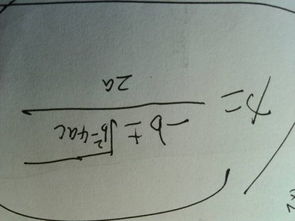 x = (-b ± √(b²-4ac)) / 2a